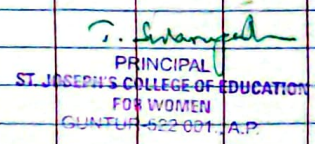 PRINCIPAL
ST. JOSEPH'S COLLEGE OF EDUCATION
FOR WOMEN
GUNTUR-522 001., A.P.